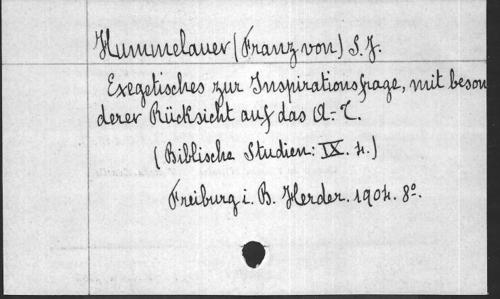 Hummelauer (Franz von) S. J.
Exegetisches zur Inspirationsfrage, mit beson
derer Rücksicht auf das A.-T.
(Biblische Studien: IX. 4.)
Freiburg i. B. Herder. 1904. 8º.